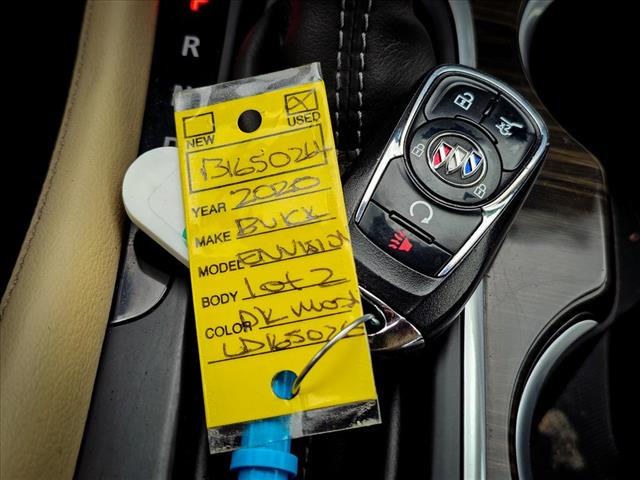 P
R
N
D
NEW
USED
B165026L
YEAR 2020
MAKE BUICK
MODEL ENVISION
BODY Lot 2
COLOR DK
LD165026